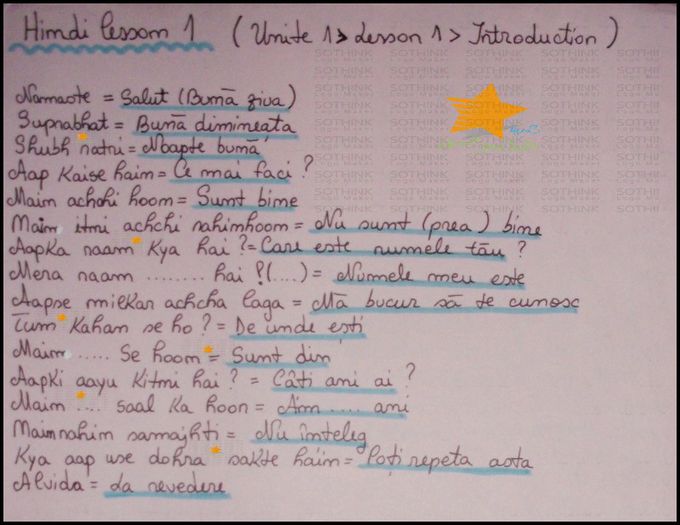 Hindi lesson 1 (Unite 1 > Lesson 1 > Introduction)
SOTHINK
Namaste = Salut (Bună ziua)
Suprabhat = Bună dimineața
Shubh ratri = Noapte bună
Aap Kaise hain = Ce mai faci ?
Main achchi hoon = Sunt bine
Main itni achchi nahimhoom = Nu sunt (prea) bine
Aapka naam Kya hai ? = Care este numele tău ?
Mera naam ........ hai !(....) = Numele meu este
Aapse milkar achcha laga = Mă bucur să te cunosc
Tum Kahan se ho ? = De unde esti
Main ..... Se hoon = Sunt din
Aapki aayu Kitni hai ? = Câti ani ai ?
Main .... saal Ka hoon = Am .... ani
Main nahin samajhti = Nu înteleg
Kya aap use dohra sakte hain = Poți repeta asta
Alvida = La revedere